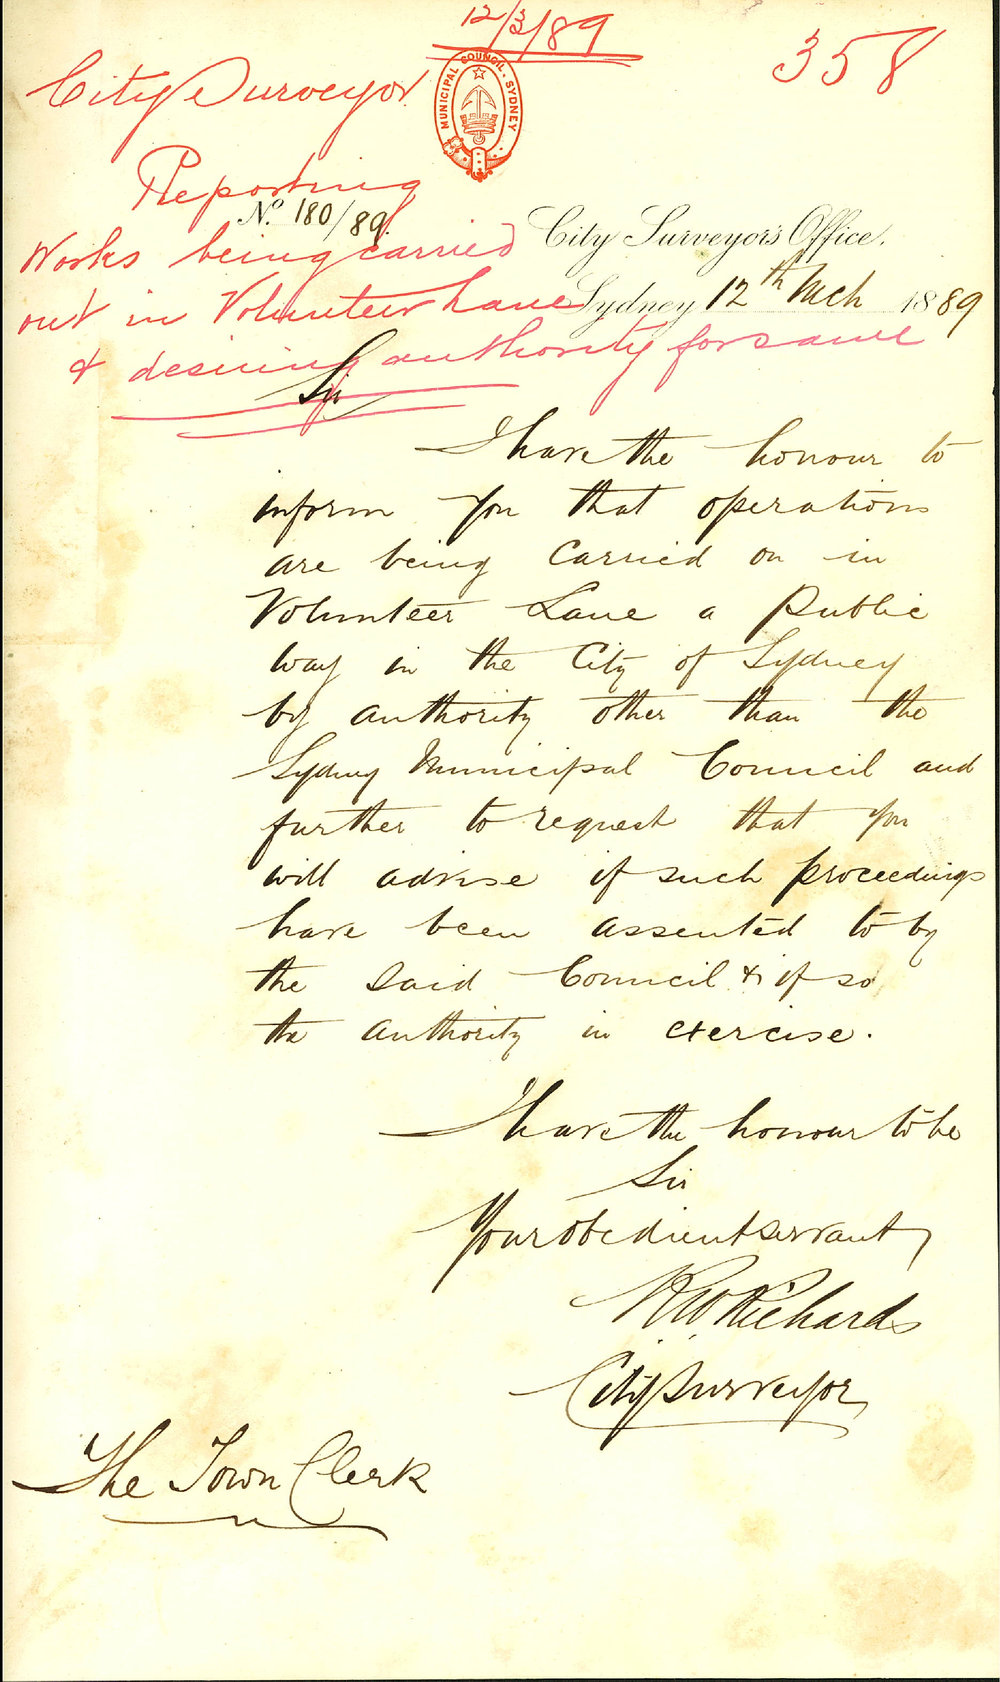 12/3/89
358
City Surveyor
MUNICIPAL COUNCIL. SYDNEY
Reporting
No. 180/89.
Works being carried
City Surveyor's Office.
out in Volunteer Lane
Sydney 12th Mch 1889
& desiring authority for same
Sir
I have the honour to
inform you that operations
are being carried on in
Volunteer Lane a Public
way in the City of Sydney
by authority other than the
Sydney Municipal Council and
further to request that you
will advise if such proceedings
have been assented to by
the said Council & if so
the authority in exercise.
I have the honour to be
Sir
Your obedient servant
R W Richards
City Surveyor
The Town Clerk